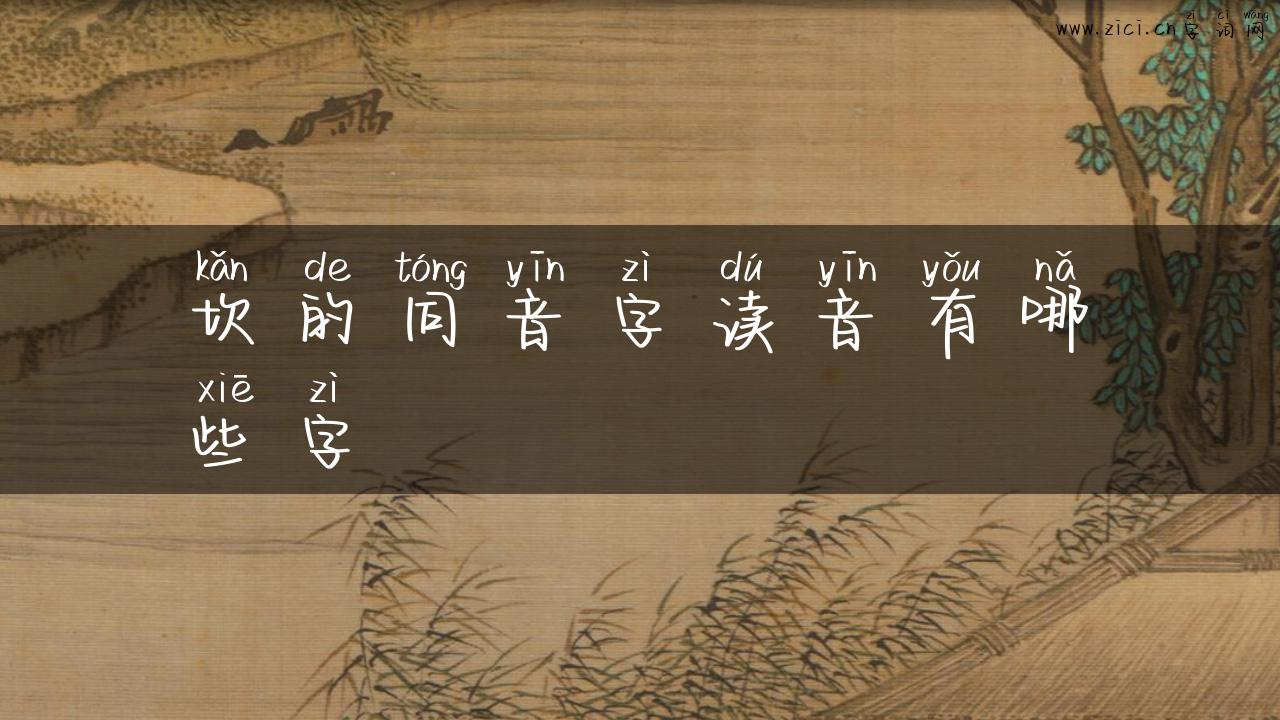 zì cí wǎng
www.zici.cn字词网
kǎn de tóng yīn zì dú yīn yǒu nǎ
坎的同音字读音有哪
xiē zì
些字